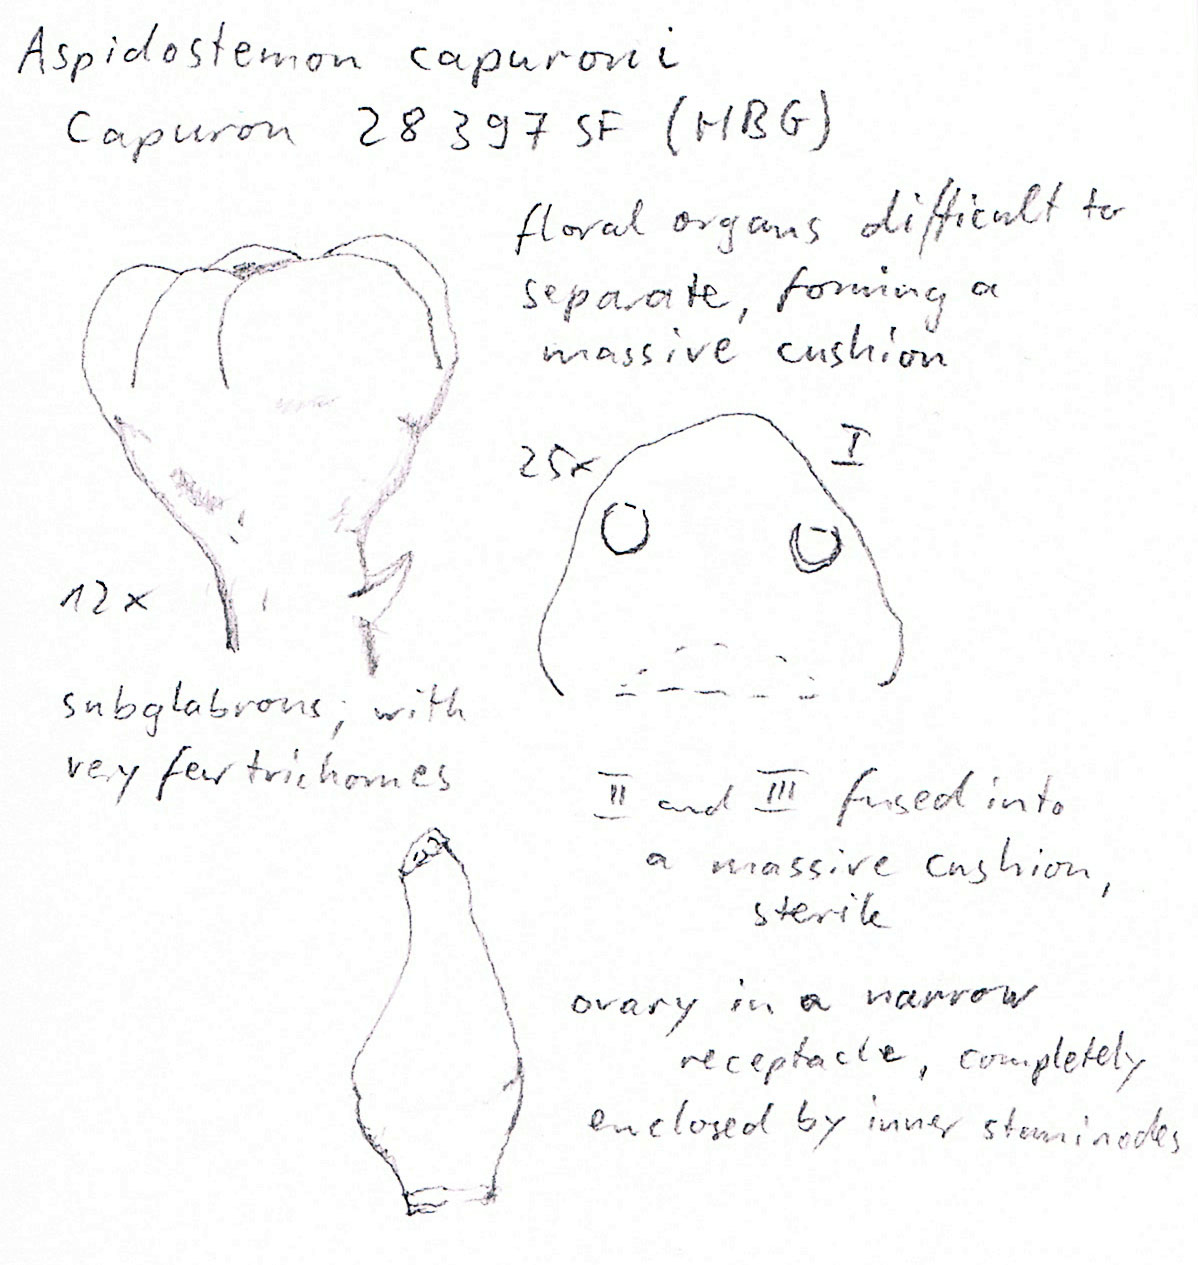 Aspidostemon capuroni
Capuron 28397 SF (HBG)
floral organs difficult to
separate, forming a
massive cushion
25x
I
12x
subglabrous, with
very few trichomes
II and III fused into
a massive cushion,
sterile
ovary in a narrow
receptacle, completely
enclosed by inner staminodes